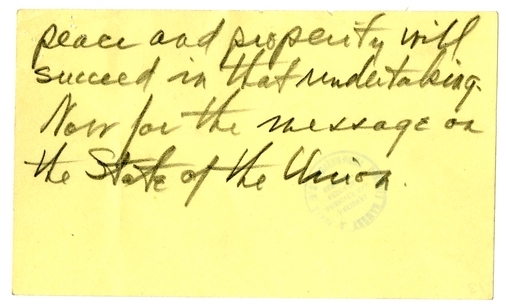 peace and prosperity will
succeed in that undertaking.
Now for the message on
the State of the Union.